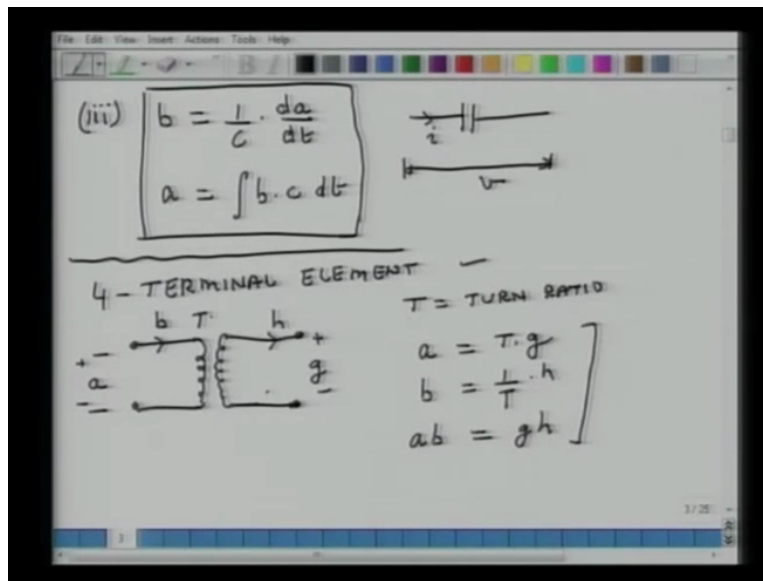 File Edit View Insert Actions Tools Help
B I
(iii) b = 1/c · da/dt
i
a = ∫ b · c dt
v
4 - TERMINAL ELEMENT
T = TURN RATIO
b T h
+ a - + g -
a = T · g
b = 1/T · h
ab = gh
3 / 25
3